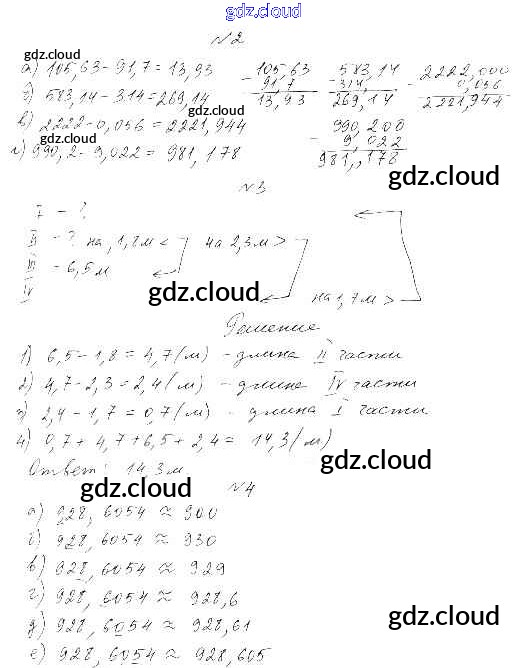 gdz.cloud
№2
gdz.cloud
а) 105,63 - 91,7 = 13,93
б) 583,14 - 314 = 269,14
в) 2222 - 0,056 = 2221,944
г) 990,2 - 9,022 = 981,178
gdz.cloud
gdz.cloud
- 105,63
91,7
13,93
gdz.cloud
583,14
- 314,
269,14
gdz.cloud
- 2222,000
0,056
2221,944
- 990,200
9,022
981,178
gdz.cloud
№3
I - ?
II - ? на 1,8м < на 2,3м >
III = 6,5м
IV на 1,7м >
gdz.cloud
gdz.cloud
Решение
1) 6,5 - 1,8 = 4,7 (м) - длина II части
2) 4,7 - 2,3 = 2,4 (м) - длина IV части
3) 2,4 - 1,7 = 0,7 (м) - длина I части
4) 0,7 + 4,7 + 6,5 + 2,4 = 14,3 (м)
gdz.cloud
Ответ: 14,3м.
gdz.cloud
№4
а) 928,6054 ≈ 900
б) 928,6054 ≈ 930
в) 928,6054 ≈ 929
г) 928,6054 ≈ 928,6
gdz.cloud
д) 928,6054 ≈ 928,61
е) 928,6054 ≈ 928,605
gdz.cloud